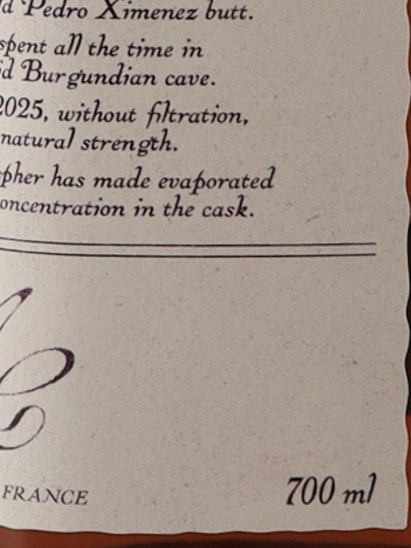 Pedro Ximenez butt.
spent all the time in
Burgundian cave.
2025, without filtration,
natural strength.
has made evaporated
in the cask.
FRANCE
700 ml